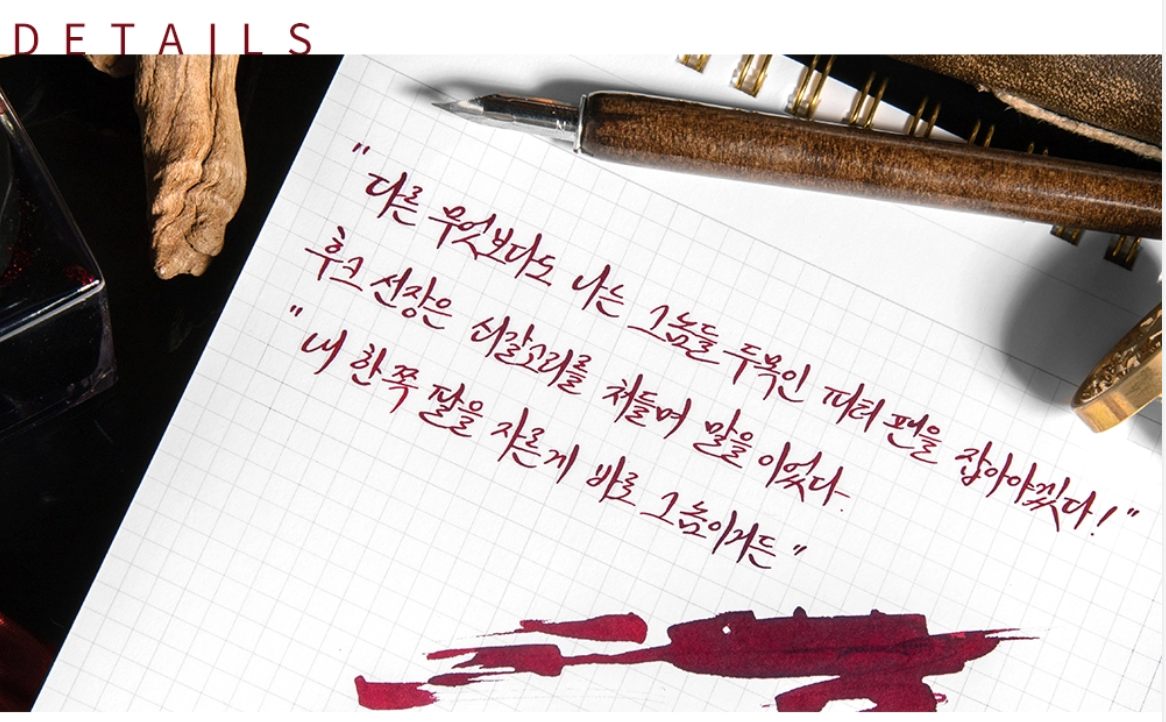 DETAILS
"다른 무엇보다도 나는 그놈들 두목인 피터 팬을 잡아야겠다!"
후크 선장은 쇠갈고리를 쳐들며 말을 이었다.
"내 한쪽 팔을 자른게 바로 그놈이거든"